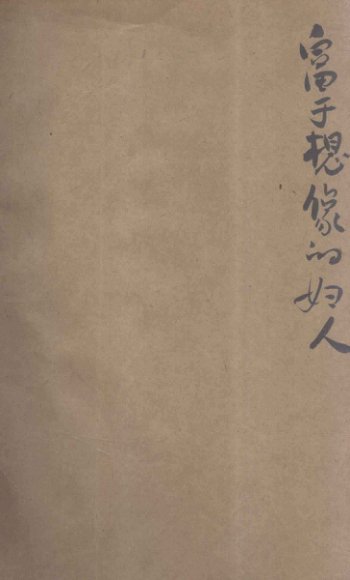 富于想像的妇人